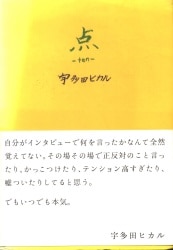 点
-ten-
宇多田ヒカル
自分がインタビューで何を言ったかなんて全然
覚えてない。その場その場で正反対のこと言っ
たり、かっこつけたり、テンション高すぎたり、
嘘ついたりしてると思う。
でもいつでも本気。
宇多田ヒカル